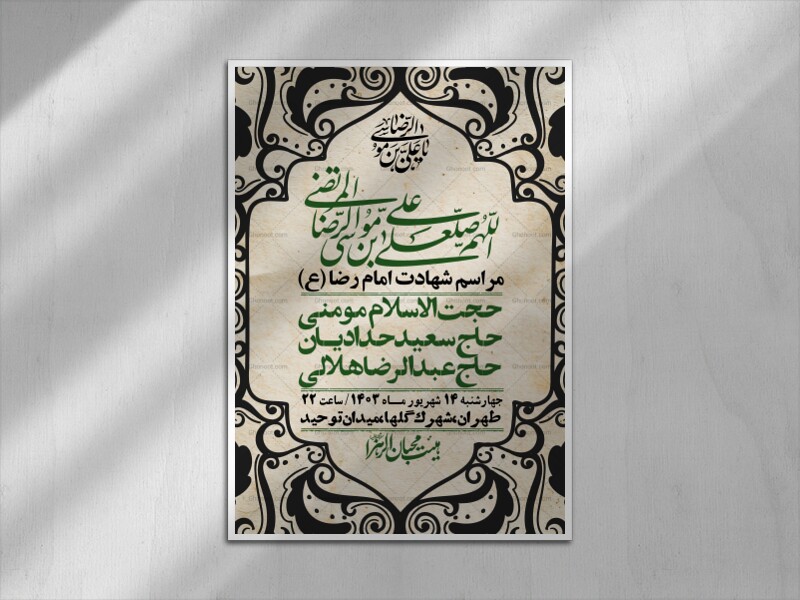 یا علی بن موسی الرضا
اللهم صل علی علی بن موسی الرضا المرتضی
مراسم شهادت امام رضا (ع)
حجت‌الاسلام مومنی
حاج سعید حدادیان
حاج عبدالرضا هلالی
چهارشنبه ۱۴ شهریور مــاه ۱۴۰۳/ساعت ۲۲
طهران،شهرك گلها،میدان توحید
هیئت محبان الزهرا
Gholroot.com